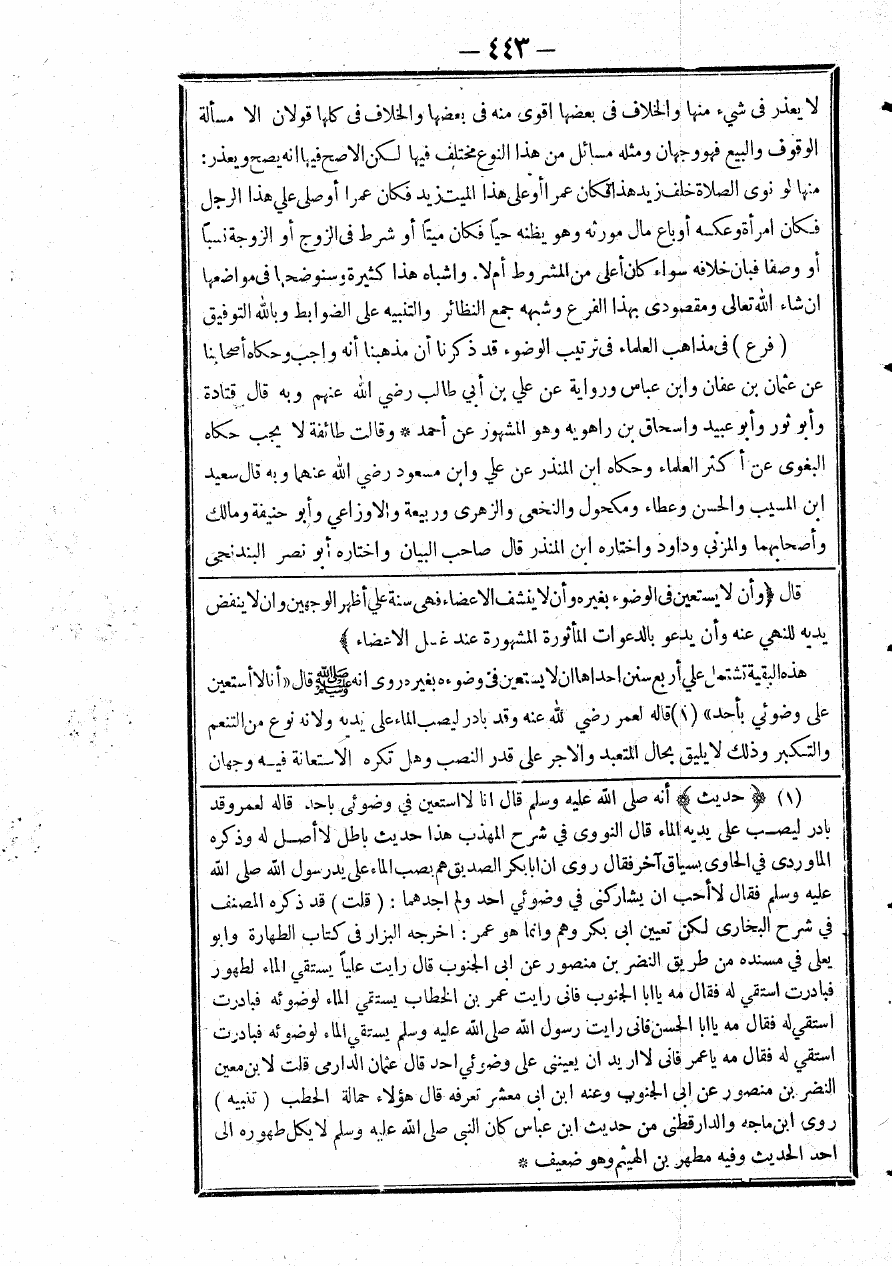 — ٤٤٣ —
لا يعذر فى شيء منها والخلاف فى بعضها اقوى منه فى بعضها والخلاف فى كلها قولان الا مسألة
الوقوف والبيع فهو وجهان ومثله مسائل من هذا النوع مختلف فيها لكن الاصح فيها انه يصح ويعذر :
منها لو نوى الصلاة خلف زيد هذا فكان عمرا أو على هذا الميت زيد فكان عمرا أو صلى علي هذا الرجل
فكان امرأة وعكسه أو باع مال مورثه وهو يظنه حياً فكان ميتاً أو شرط فى الزوج أو الزوجة نسباً
أو وصفا فبان خلافه سواء كان أعلى من المشروط أم لا . واشباه هذا كثيرة وسنوضحها فى مواضعها
ان شاء الله تعالى ومقصودى بهذا الفرع وشبهه جمع النظائر والتنبيه على الضوابط وبالله التوفيق
( فرع ) فى مذاهب العلماء فى ترتيب الوضوء قد ذكرنا أن مذهبنا أنه واجب وحكاه أصحابنا
عن عثمان بن عفان وابن عباس ورواية عن علي بن أبي طالب رضي الله عنهم وبه قال قتادة
وأبو ثور وأبو عبيد واسحاق بن راهويه وهو المشهور عن أحمد * وقالت طائفة لا يجب حكاه
البغوى عن أكثر العلماء وحكاه ابن المنذر عن علي وابن مسعود رضي الله عنهما وبه قال سعيد
ابن المسيب والحسن وعطاء ومكحول والنخعى والزهرى وربيعة والاوزاعي وأبو حنيفة ومالك
وأصحابهما والمزني وداود واختاره ابن المنذر قال صاحب البيان واختاره أبو نصر البندنجى
قال ﴿ وأن لا يستعين فى الوضوء بغيره وأن لا ينشف الاعضاء فهى سنة علي أظهر الوجهين وان لا ينفض
يديه للنهي عنه وأن يدعو بالدعوات المأثورة المشهورة عند غسل الاعضاء ﴾
هذه البقية تشتمل علي أربع سنن احداها ان لا يستعين فى وضوءه بغيره روى انه ﷺ قال « أنا لا أستعين
على وضوئي بأحد » (١) قاله لعمر رضي الله عنه وقد بادر ليصب الماء على يديه ولانه نوع من التنعم
والتكبر وذلك لا يليق بحال المتعبد والاجر على قدر النصب وهل تكره الاستعانة فيه وجهان
(١) ﴿ حديث ﴾ أنه صلى الله عليه وسلم قال انا لا استعين في وضوئى باحد قاله لعمر وقد
بادر ليصب على يديه الماء قال النووى في شرح المهذب هذا حديث باطل لا أصل له وذكره
الماوردى في الحاوى بسياق آخر فقال روى ان ابا بكر الصديق هم بصب الماء على يد رسول الله صلى الله
عليه وسلم فقال لا أحب ان يشاركنى في وضوئي احد ولم اجدهما : ( قلت ) قد ذكره المصنف
في شرح البخارى لكن تعيين ابى بكر وهم وانما هو عمر : اخرجه البزار فى كتاب الطهارة وابو
يعلى في مسنده من طريق النضر بن منصور عن ابى الجنوب قال رايت علياً يستقي الماء لطهور
فبادرت استقي له فقال مه يا ابا الجنوب فانى رايت عمر بن الخطاب يستقي الماء لوضوئه فبادرت
استقي له فقال مه يا ابا الحسن فانى رايت رسول الله صلى الله عليه وسلم يستقي الماء لوضوئه فبادرت
استقي له فقال مه يا عمر فانى لا اريد ان يعيننى على وضوئي احد قال عثمان الدارمى قلت لابن معين
النضر بن منصور عن ابى الجنوب وعنه ابن ابى معشر تعرفه قال هؤلاء حمالة الحطب ( تنبيه )
روى ابن ماجه والدارقطنى من حديث ابن عباس كان النبى صلى الله عليه وسلم لا يكل طهوره الى
احد الحديث وفيه مطهر بن الهيثم وهو ضعيف *